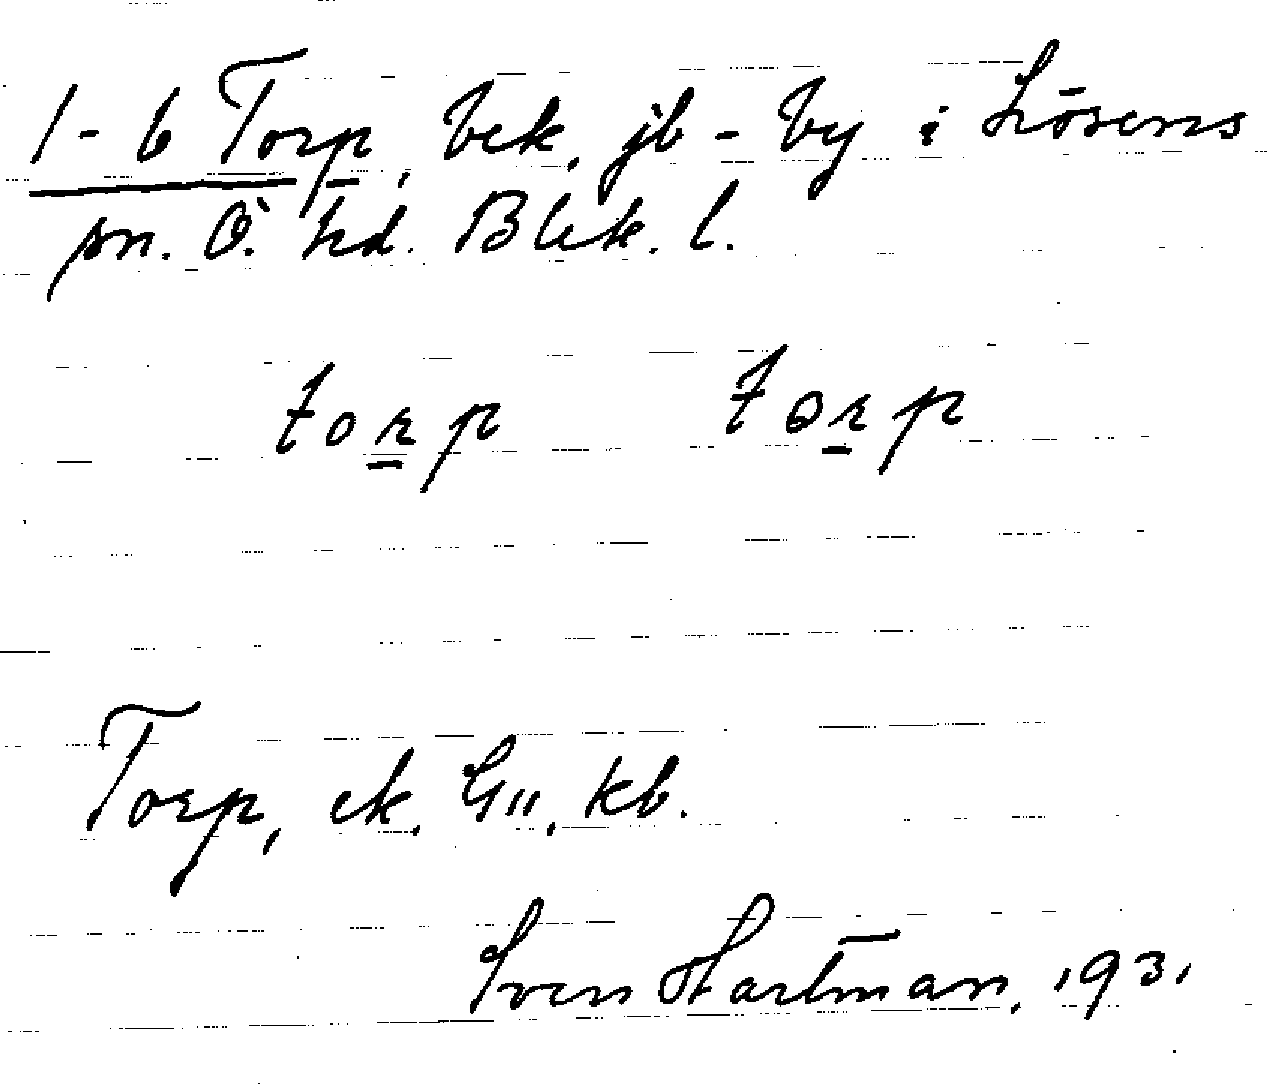 1-6 Torp, bek. jb-by i Lösens
sn. Ö. hd. Blek. l.
torp torp
Torp, ek. G11, kb.
Sven Hartman, 1931